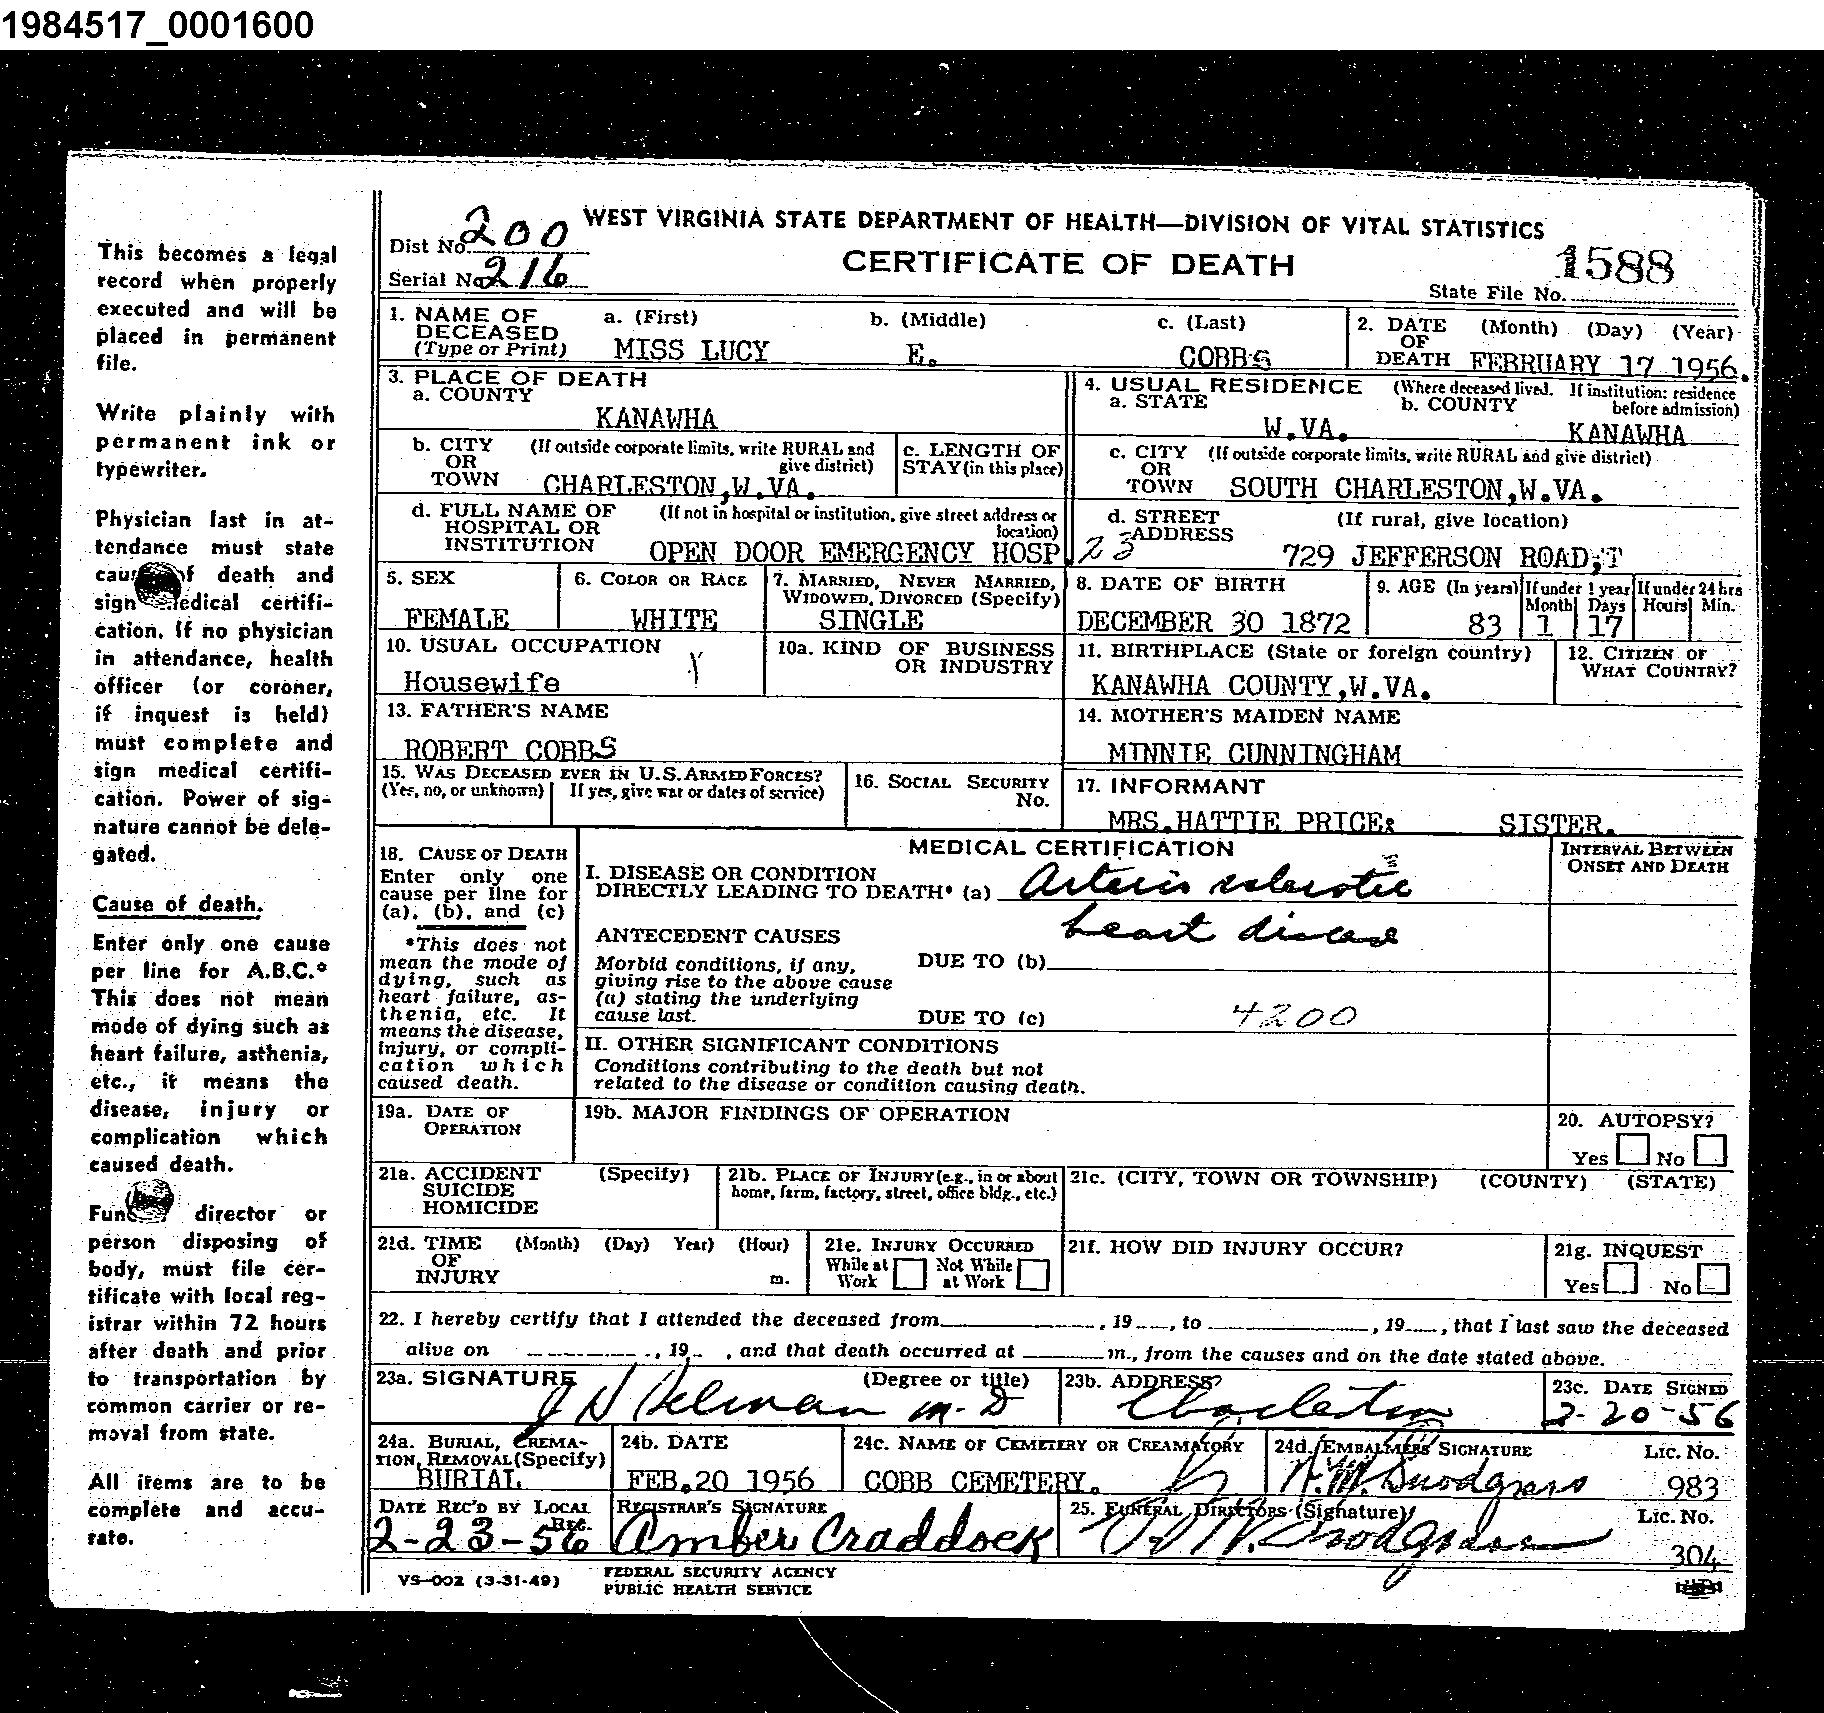 1984517_0001600
This becomes a legal
record when properly
executed and will be
placed in permanent
file.
Write plainly with
permanent ink or
typewriter.
Physician last in at-
tendance must state
of death and
sign medical certifi-
cation. If no physician
in attendance, health
officer (or coroner,
if inquest is held)
must complete and
sign medical certifi-
cation. Power of sig-
nature cannot be dele-
gated.
Cause of death.
Enter only one cause
per line for A.B.C.*
This does not mean
mode of dying such as
heart failure, asthenia,
etc., it means the
disease, injury or
complication which
caused death.
director or
person disposing of
body, must file cer-
tificate with local reg-
istrar within 72 hours
after death and prior
to transportation by
common carrier or re-
moval from state.
All items are to be
complete and accu-
rate.
WEST VIRGINIA STATE DEPARTMENT OF HEALTH—DIVISION OF VITAL STATISTICS
Dist No. 200
Serial No. 216
CERTIFICATE OF DEATH
1588
State File No.
1. NAME OF DECEASED (Type or Print) a. (First) b. (Middle) c. (Last)
MISS LUCY E. COBBS
2. DATE OF DEATH (Month) (Day) (Year)
FEBRUARY 17 1956.
3. PLACE OF DEATH
a. COUNTY
KANAWHA
4. USUAL RESIDENCE (Where deceased lived. If institution: residence before admission)
a. STATE b. COUNTY
W.VA. KANAWHA
b. CITY OR TOWN (If outside corporate limits, write RURAL and give district)
CHARLESTON,W.VA.
c. LENGTH OF STAY (in this place)
c. CITY OR TOWN (If outside corporate limits, write RURAL and give district)
SOUTH CHARLESTON,W.VA.
d. FULL NAME OF HOSPITAL OR INSTITUTION (If not in hospital or institution, give street address or location)
OPEN DOOR EMERGENCY HOSP.
23
d. STREET ADDRESS (If rural, give location)
729 JEFFERSON ROAD,T
5. SEX
FEMALE
6. COLOR OR RACE
WHITE
7. MARRIED, NEVER MARRIED, WIDOWED, DIVORCED (Specify)
SINGLE
8. DATE OF BIRTH
DECEMBER 30 1872
9. AGE (In years) If under 1 year Month Days If under 24 hrs Hours Min.
83 1 17
10. USUAL OCCUPATION
Housewife
10a. KIND OF BUSINESS OR INDUSTRY
11. BIRTHPLACE (State or foreign country)
KANAWHA COUNTY,W.VA.
12. CITIZEN OF WHAT COUNTRY?
13. FATHER'S NAME
ROBERT COBBS
14. MOTHER'S MAIDEN NAME
MINNIE CUNNINGHAM
15. WAS DECEASED EVER IN U.S. ARMED FORCES?
(Yes, no, or unknown) If yes, give war or dates of service)
16. SOCIAL SECURITY No.
17. INFORMANT
MRS.HATTIE PRICE: SISTER.
18. CAUSE OF DEATH
Enter only one
cause per line for
(a), (b), and (c)
*This does not
mean the mode of
dying, such as
heart failure, as-
thenia, etc. It
means the disease,
injury, or compli-
cation which
caused death.
MEDICAL CERTIFICATION
INTERVAL BETWEEN ONSET AND DEATH
I. DISEASE OR CONDITION
DIRECTLY LEADING TO DEATH* (a) Arterio sclerotic
heart disease
ANTECEDENT CAUSES
Morbid conditions, if any,
giving rise to the above cause
(a) stating the underlying
cause last.
DUE TO (b)
DUE TO (c) 4200
II. OTHER SIGNIFICANT CONDITIONS
Conditions contributing to the death but not
related to the disease or condition causing death.
19a. DATE OF OPERATION
19b. MAJOR FINDINGS OF OPERATION
20. AUTOPSY?
Yes No
21a. ACCIDENT SUICIDE HOMICIDE (Specify)
21b. PLACE OF INJURY (e.g., in or about home, farm, factory, street, office bldg., etc.)
21c. (CITY, TOWN OR TOWNSHIP) (COUNTY) (STATE)
21d. TIME OF INJURY (Month) (Day) Year) (Hour) m.
21e. INJURY OCCURRED
While at Work Not While at Work
21f. HOW DID INJURY OCCUR?
21g. INQUEST
Yes No
22. I hereby certify that I attended the deceased from , 19 , to , 19 , that I last saw the deceased
alive on , 19 , and that death occurred at m., from the causes and on the date stated above.
23a. SIGNATURE (Degree or title)
M.D
23b. ADDRESS?
Charleston
23c. DATE SIGNED
2-20-56
24a. BURIAL, CREMA-TION, REMOVAL (Specify)
BURIAL
24b. DATE
FEB.20 1956
24c. NAME OF CEMETERY OR CREAMATORY
COBB CEMETERY.
24d. EMBALMERS SIGNATURE Lic. No.
Snodgrass 983
DATE REC'D BY LOCAL REG.
2-23-56
REGISTRAR'S SIGNATURE
Amber Craddock
25. FUNERAL DIRECTORS (Signature) Lic. No.
Snodgrass 304
VS-002 (3-31-49)
FEDERAL SECURITY AGENCY
PUBLIC HEALTH SERVICE